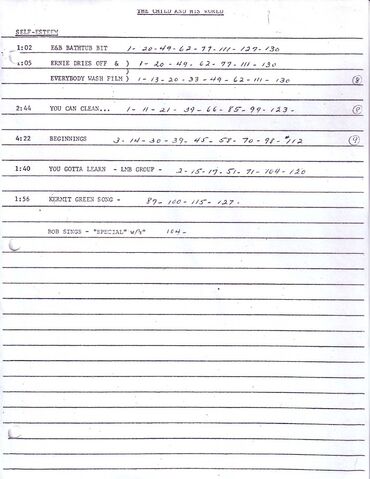 THE CHILD AND HIS WORLD
SELF-ESTEEM
1:02 E&B BATHTUB BIT 1- 20-49-62-77-111-127-130
1:05 ERNIE DRIES OFF & ) 1-20-49-62-77-111-130
EVERYBODY WASH FILM ) 1-13-20-33-49-62-111-130 (8)
2:44 YOU CAN CLEAN... 1-11-21-39-66-85-99-123-
4:22 BEGINNINGS 3-14-30-39-45-58-70-98-#112 (9)
1:40 YOU GOTTA LEARN - LMB GROUP - 2-15-19-51-71-104-120
1:56 KERMIT GREEN SONG - 89-100-115-127-
BOB SINGS - "SPECIAL" 104-